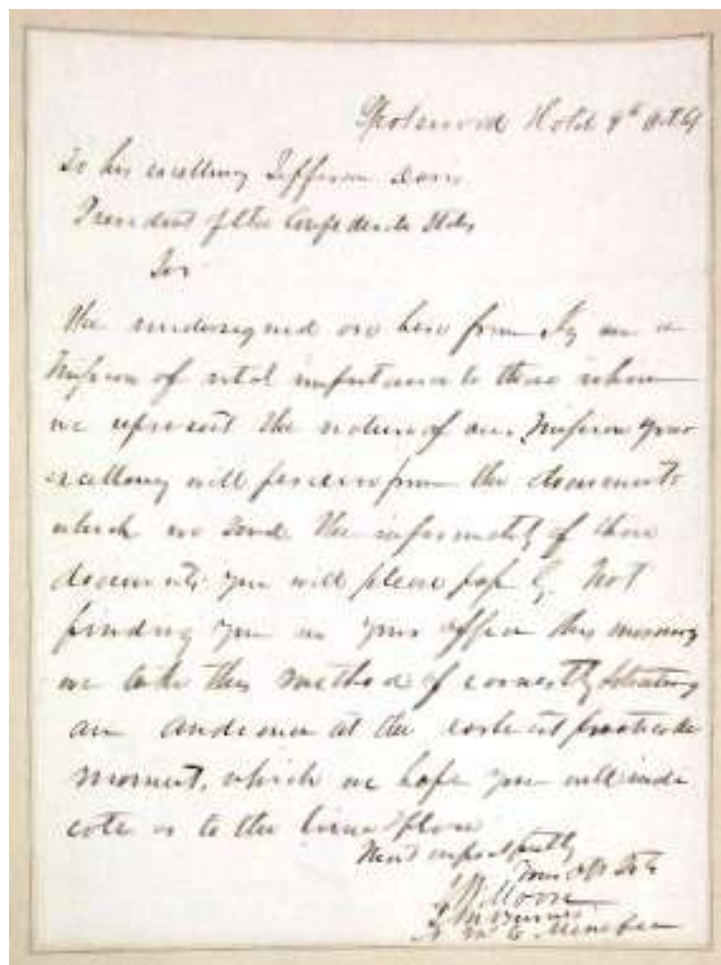 Spotswood Hotel 9th Oct 61
To his excellency Jefferson Davis
President of the Confederate States
Sir
The undersigned are here from Ky on a
Mission of vital importance to those whom
we represent the nature of our Mission your
excellency will perceive from the documents
which we send the informality of those
documents you will please pass by. Not
finding you in your office this morning
we take this method of earnestly soliciting
an audience at the earliest practicable
moment, which we hope you will indi
cate as to the time & place
Most respectfully
Your Obt
Moore